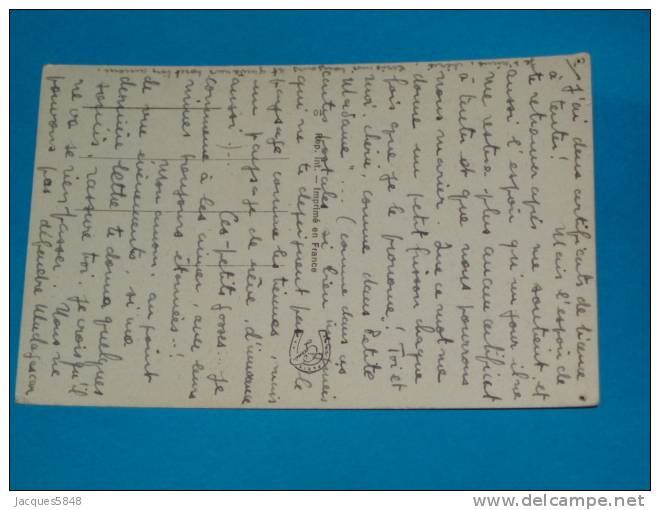 2/ J'ai deux certificats de licence
à tenter! Mais l'espoir de
te retrouver après me soutient et
aussi l'espoir qu'un jour il ne
me restera plus aucun certificat
à tenter et que nous pourrons
nous marier. Que ce mot me
donne un petit frisson chaque
fois que je le prononce! Toi et
moi, chérie, comme dans "Petite
Madame"... (comme dans ces
cartes postales si bien
qui ne te dépeignent pas le
paysage comme les tiennes, mais
un paysage de rêve, d'
aussi)... Ces petits gosses... Je
commence à les aimer, avec leurs
mines toujours étonnées..!
Mon amour, au point
de vue événements si ma
dernière lettre te donna quelques
soucis, rassure toi. Je crois qu'il
ne va se rien passer. Nous ne
pouvons pas défendre Madagascar
Rép. Int. — Imprimé en France
Jacques5848
delcampe.net